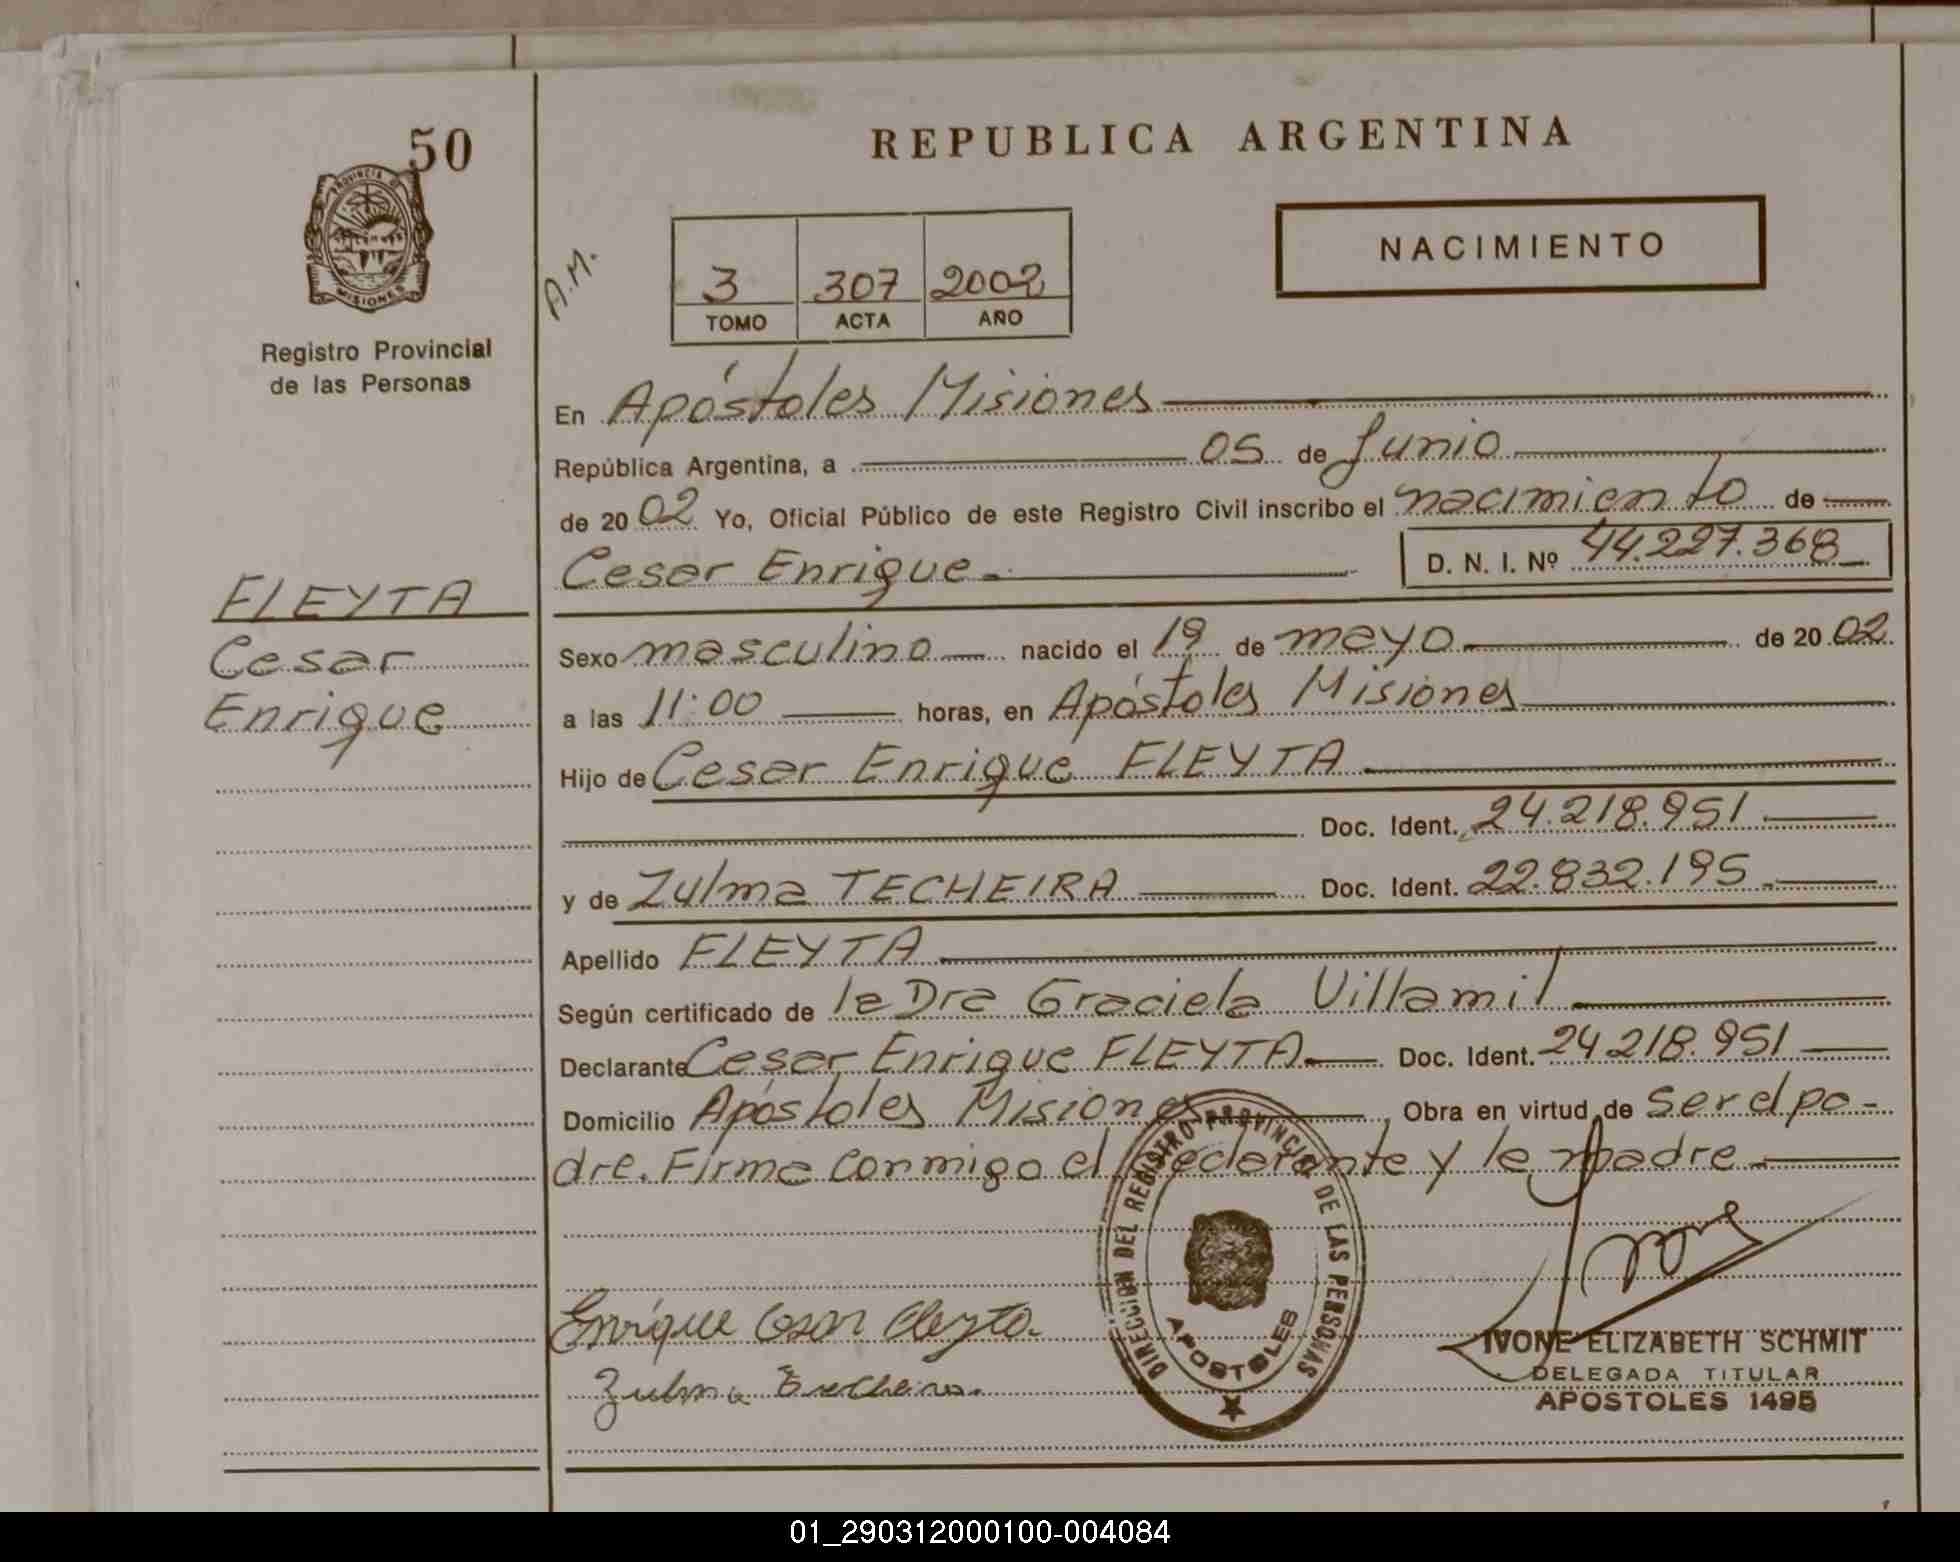 50
REPUBLICA ARGENTINA
PROVINCIA DE
MISIONES
Registro Provincial
de las Personas
A.M.
3 307 2002
TOMO ACTA AÑO
NACIMIENTO
En Apóstoles Misiones
República Argentina, a 05 de Junio
de 2002 Yo, Oficial Público de este Registro Civil inscribo el nacimiento de
Cesar Enrique.
D. N. I. Nº 44.227.368
FLEYTA
Cesar
Enrique
Sexo masculino nacido el 19 de mayo de 2002
a las 11:00 horas, en Apóstoles Misiones
Hijo de Cesar Enrique FLEYTA
Doc. Ident. 24.218.951
y de Zulma TECHEIRA Doc. Ident. 22.832.195
Apellido FLEYTA
Según certificado de la Dra Graciela Villamil
Declarante Cesar Enrique FLEYTA Doc. Ident. 24 218.951
Domicilio Apóstoles Misiones Obra en virtud de ser el pa-
dre. Firma conmigo el declarante y la madre
DIRECCION DEL REGISTRO PROVINCIAL DE LAS PERSONAS
APOSTOLES
Enrique Cesar Fleyta
Zulma Techeira.
IVONE ELIZABETH SCHMIT
DELEGADA TITULAR
APOSTOLES 1495
01_290312000100-004084